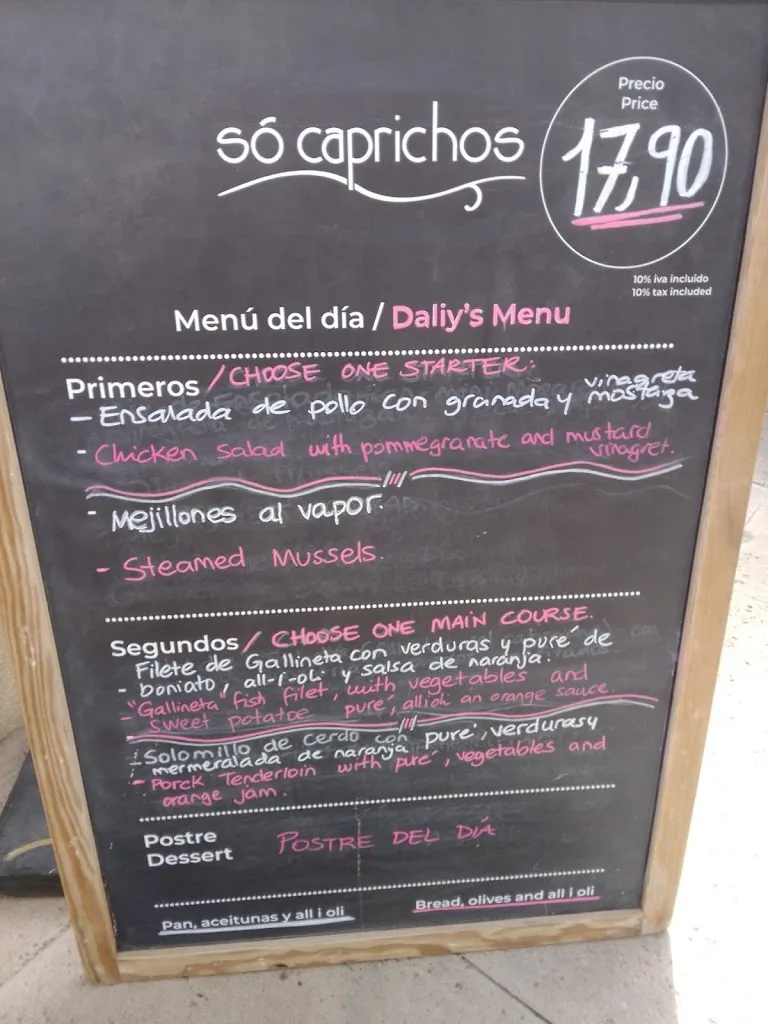 só caprichos
Precio
Price
17,90
10% iva incluido
10% tax included
Menú del día / Daliy's Menu
Primeros / CHOOSE ONE STARTER:
- Ensalada de pollo con granada y vinagreta mostaza
- Chicken Salad with pommegranate and mustard
vinagret.
- Mejillones al vapor.
- Steamed Mussels.
Segundos / CHOOSE ONE MAIN COURSE.
Filete de Gallineta con verduras y puré de
- boniato, all-i-oli y salsa de naranja.
- "Gallineta" fish filet, with vegetables and
sweet potatoe pure', allioli an orange sauce.
- Solomillo de cerdo con pure', verduras y
mermeralada de naranja
- Porck Tenderloin with pure', vegetables and
orange jam.
Postre
Dessert
POSTRE DEL DIÁ
Pan, aceitunas y all i oli
Bread, olives and all i oli